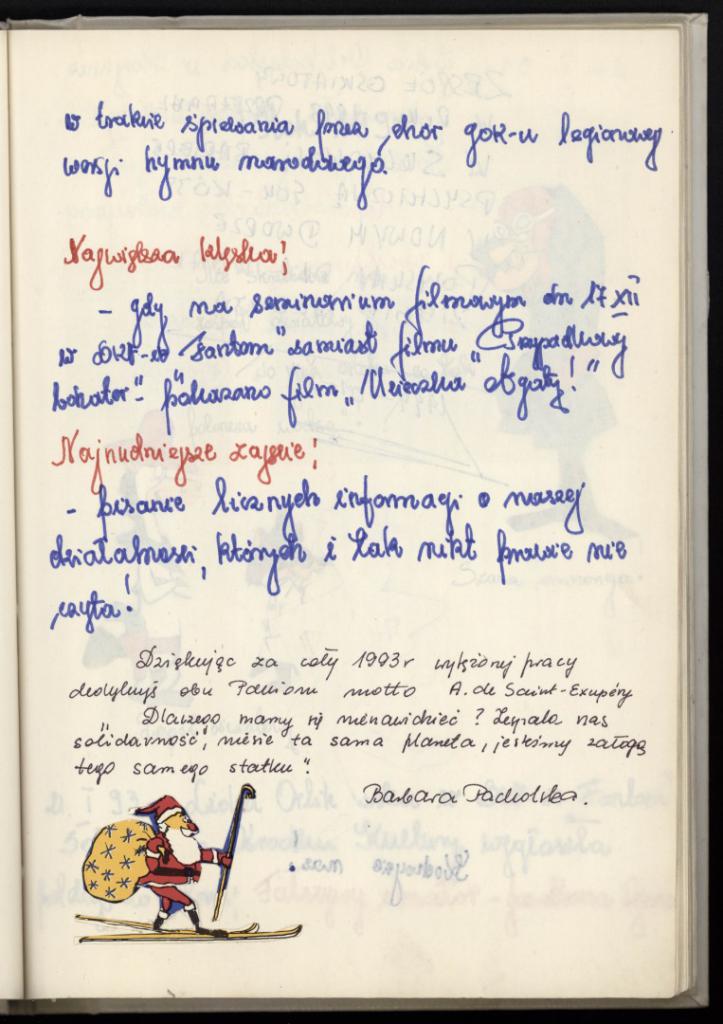 w trakcie śpiewania przez chór gok-u legionowej
wersji hymnu narodowego.
Największa klęska!
- gdy na seminarium filmowym dn 17 XII
w DKF-ie "Fantom" zamiast filmu "Przypadkowy
lokator" - pokazano film "Ucieczka" Zgroza!"
Najnudniejsze zajęcie!
- pisanie licznych informacji o naszej
działalności, których i tak nikt prawie nie
czyta!
Dziękując za cały 1993r wytężonej pracy
dedykuję obu Paniom motto A. de Saint-Exupéry
"Dlaczego mamy się nienawidzieć? Zespala nas
solidarność, niesie ta sama planeta, jesteśmy załogą
tego samego statku".
Barbara Pacholska.